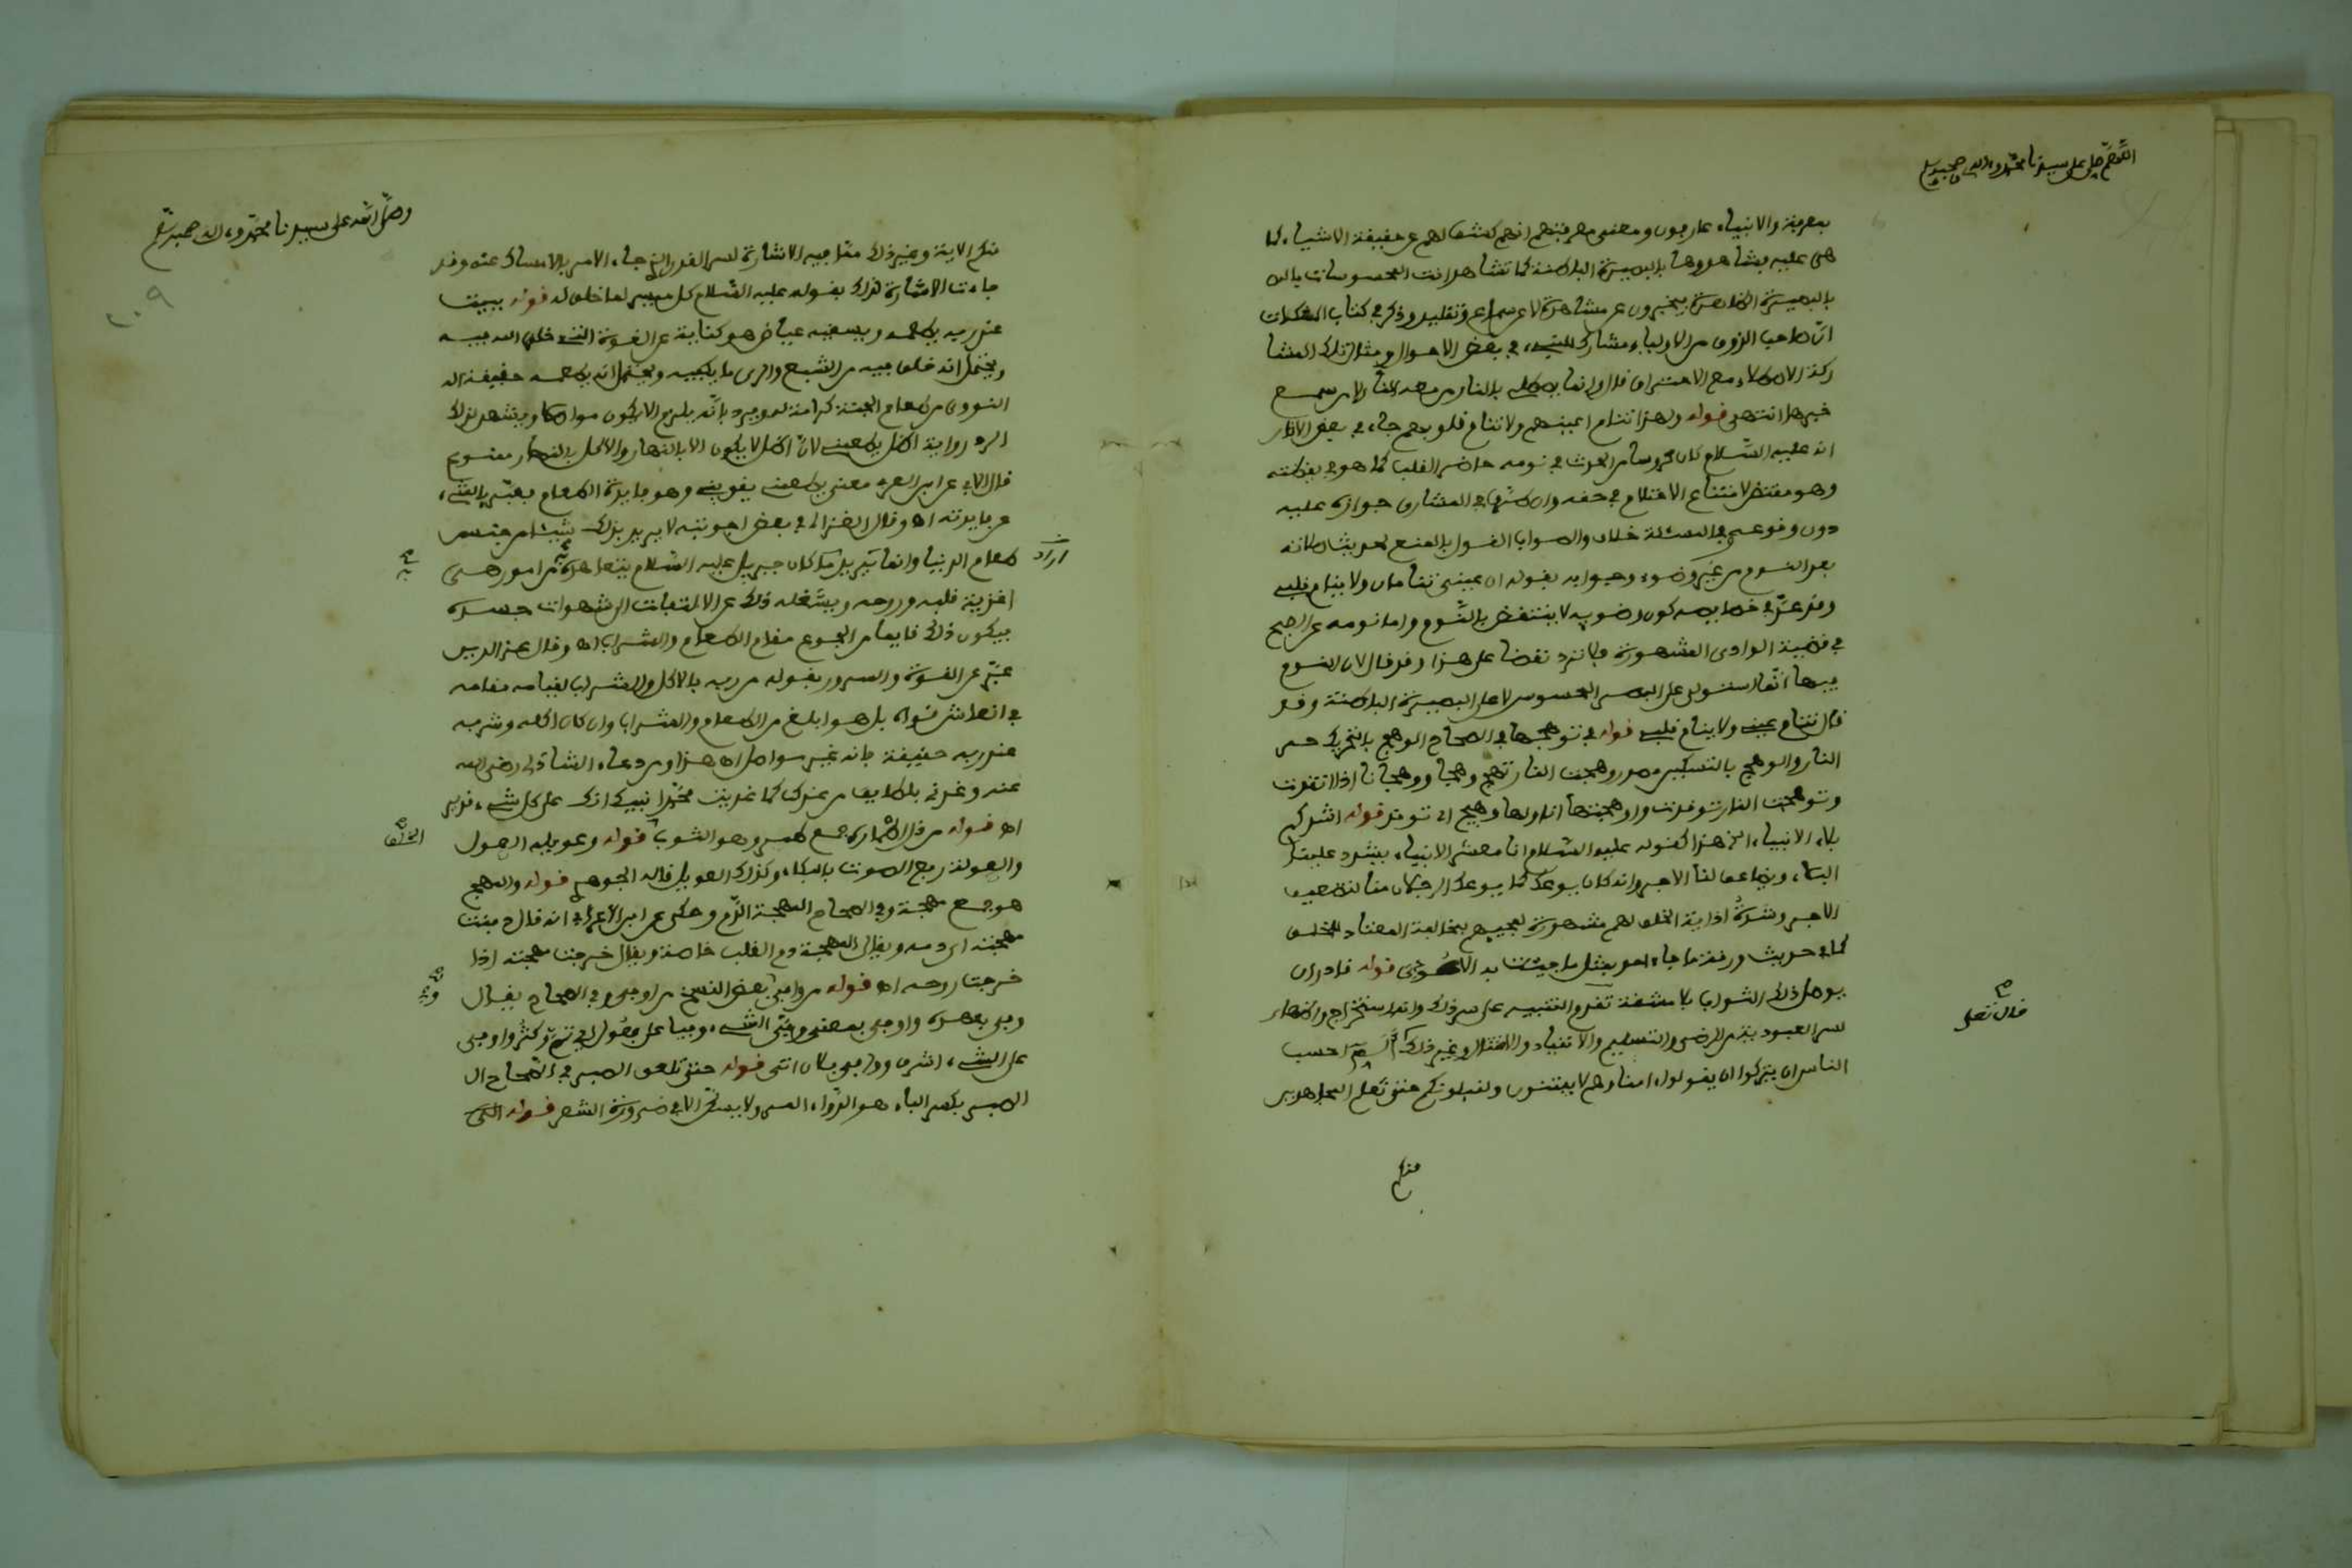 اللهم صل على سيدنا محمد وءاله وصحبه وسلم
بمعرفة والانبياء عارفون ومعنى معرفتهم انهم كشف لهم عن حقيقة الاشياء كما
هى عليه فشاهدوها بالبصيرة الباطنة كما تشاهد انت المحسوسات
بالبصيرة الظاهرة فيخبرون عن مشاهدة لا عن سماع وتقليد وذكر فى كتاب
انّ صاحب الذوق من الاولياء مشارك للنبىء فى بعض الاحوال ومثال تلك المشا
ركة الاصطلاء مع الاحتراق قال وانما يصطلى بالنار من معه لا من سمع
خبرها انتهى قوله ولهذا تنام اعينهم ولا تنام قلوبهم جاء فى بعض الاثار
انه عليه السّلام كان محروسا من الحدث فى نومه حاضر القلب كما هو فى يقظته
وهو مقتض لامتناع الاحتلام فى حقه وان فى المشارق جوازه عليه
دون وقوعه وفى المسئلة خلاف والصواب القول بالمنع لحديث
بعد النوم من غير وضوء وجوابه بقوله ان عينىّ تنامان ولا ينام قلبى
وقد عدّ فى خصايصه كون وضوءه لا ينتقض بالنّوم واما نومه عن الصبح
فى قضية الوادى المشهورة فلا ترد نقضا على هذا وقد قال لان النوم
فيها انّما استولى على البصر المحسوس لا على البصيرة الباطنة وقد
قال تنام عينى ولا ينام قلبى قوله فى توهجها فى الصحاح الوهج بالتحريك حر
النار والوهج بالتسكين مصدر وهجت النار تهج وهجا ووهجانا اذا اتقدت
وتوهجت النار توقدت واوهجتها انا ولها وهيج اى توقد قوله اشدكم
بلاء الانبياء الخ هذا كقوله عليه السّلام انا معشر الانبياء يشدد علينا
البلاء ويضاعف لنا الاجر وانه كان يوعك كما يوعك الرجلان منا لتضعيف
الاجر وشدّة اذاية الخلق لهم مشهورة لمجيئهم بمخالفة المعتاد للخلق
كما فى حديث ورقة ما جاء احد بمثل ما جئت به الا عودى قوله قادر ان
يوصل ذلك الثواب بلا مشقة تقدم التنبيه على سر ذلك وانه استخراج واظهار
لسر العبودية من الرضى والتسليم والانقياد والامتثال وغير ذلك الٓمّٓ احسب
قال تعلى
الناس ان يتركوا ان يقولوا ءامنا وهم لا يفتنون ولنبلونكم حتى نعلم المجاهدين
منكم
وصلّى الله على سيدنا محمّد وءاله وصحبه وسلّم
٢٠٩
منكم الاية وغير ذلك ممّا فيه الاشارة لسر القدر الذى جاء الامر بالامساك عنه وقد
جاءت الاشارة لذلك بقوله عليه السّلام كل ميسر لما خلق له قوله يبيت
عند ربه يطعمه ويسقيه عياض هو كناية عن القوة التى خلق الله فيه
ويحتمل انه خلق فيه من الشبع والرى ما يكفيه ويحتمل انه يطعمه حقيقة اله
النووى من طعام الجنة كرامة له ويرد بانّه يلزم الا يكون مواصلا ويشهد لذلك
الرد رواية اظل يطعمنى لانّ اظل لا يكون الا بالنهار والاكل بالنهار ممنوع
قال الابى عن ابن العربى معنى يطعمنى يقوينى وهو فايدة الطعام فعبّر بالشىء
عن فايدته اه وقال الغزالى فى بعض اجوبته لا يريد بذلك شيئا من جنس
اراد
طعام الدنيا وانما يريد ما كان جبريل عليه السّلام يتعاهده به من امور هى
اغذية قلبه وروحه ويشغله ذلك عن الالتفات الى شهوات جسده
فيكون ذلك قايما من الجوع مقام الطعام والشراب اه وقال عز الدين
عبّر عن القوة والسرور بقوله من ربه بالاكل والشرب لقيامه مقامه
فى انعاش قواه بل هو ابلغ من الطعام والشراب وان كان اكله وشربه
عند ربه حقيقة فانه غير مواصل اه هذا ومن دعاء الشاذلى رضى الله
عنه وغذنى بلطايف من عندك كما غذيت محمّدا نبيك انك على كل شىء قدير
الخلق
اه قوله من قال الاطمار جمع طمر وهو الثوب قوله وعويله العول
والعولة رفع الصوت بالبكاء وكذلك العويل قاله الجوهرى قوله والمهج
هو جمع مهجة وفى الصحاح المهجة الدّم وحكى عن ابن الاعرابى انه قال دفنت
مهجته اى دمه ويقال المهجة دم القلب خاصة ويقال خرجت مهجته اذا
خرجت روحه اه قوله من وافى بعض النسخ من اوفى وفى الصحاح يقال
وفى بعهده واوفى بمعنى ووفى الشىء وفيا على فعول اى تمّ وكثر واوفى
على الشىء اشرف ووافى فلان اتى قوله حتى تلعق الصبر فى الصّحاح ال
الصبر بكسر الباء هو الدّواء المر ولا يسكّن الا فى ضرورة الشعر قوله